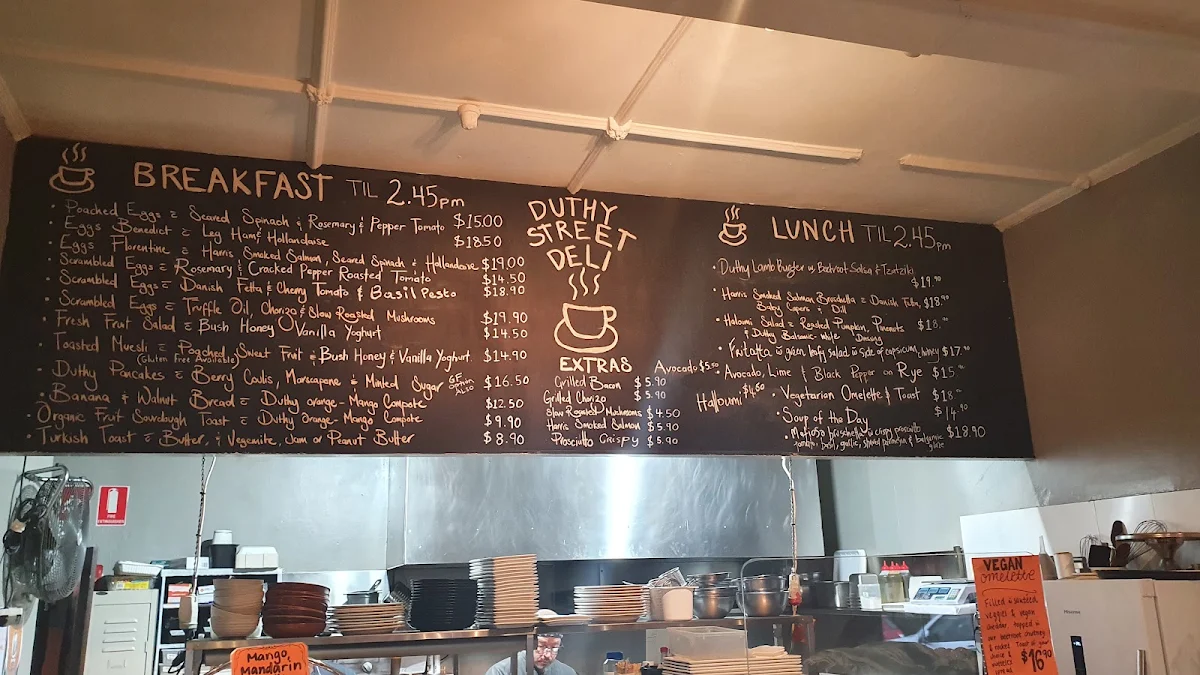 BREAKFAST TIL 2.45pm
• Poached Eggs c Seared Spinach & Rosemary & Pepper Tomato $15.00
• Eggs Benedict c Leg Ham & Hollandaise $18.50
• Eggs Florentine c Harris Smoked Salmon, Seared Spinach & Hollandaise $19.00
• Scrambled Eggs c Rosemary & Cracked Pepper Roasted Tomato $14.50
• Scrambled Eggs c Danish Fetta & Cherry Tomato & Basil Pesto $18.90
• Scrambled Eggs c Truffle Oil, Chorizo & Slow Roasted Mushrooms $19.90
• Fresh Fruit Salad c Bush Honey Vanilla Yoghurt $14.50
• Toasted Muesli c Poached Sweet Fruit & Bush Honey & Vanilla Yoghurt. $14.90
(Gluten Free Available)
• Duthy Pancakes c Berry Coulis, Marscapone & Minted Sugar GF option ALSO $16.50
• Banana & Walnut Bread c Duthy Orange-Mango Compote $12.50
• Organic Fruit Sourdough Toast c Duthy Orange-Mango Compote $9.90
• Turkish Toast c Butter, & Vegemite, Jam or Peanut Butter $8.90
DUTHY
STREET
DELI
EXTRAS
Avocado $5.00
Grilled Bacon $5.90
Grilled Chorizo $5.90
Slow Roasted Mushrooms $4.50
Harris Smoked Salmon $5.90
Prosciutto Crispy $5.90
Halloumi $4.60
LUNCH TIL 2.45pm
• Duthy Lamb Burger w Beetroot Salsa & Tzatziki
$19.90
• Harris Smoked Salmon Bruschetta c Danish Feta, $18.90
Baby Capers & Dill
• Haloumi Salad c Roasted Pumpkin, Pinenuts $18.
& Duthy Balsamic White Dressing
• Frittatta w green leafy salad w side of capsicum chutney $17.90
• Avocado, Lime & Black Pepper on Rye $15.
• Vegetarian Omelette & Toast $18.
• Soup of the Day $14.90
• Mafiosa bruschetta w crispy prosciutto $18.90
tomato, basil, garlic, shaved parmesan & balsamic glaze
FIRE
EXTINGUISHER
Mango,
Mandarin
VEGAN
omelette
Filled w sauteed
veggies & vegan
cheddar, topped w
our beetroot chutney
$16.90
Hisense